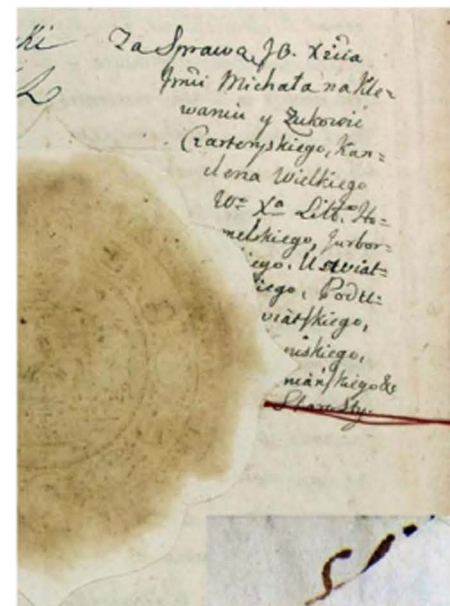 ki
Za Sprawą JO. Xcia
Jmći Michała na Kle=
waniu y Żukowie
Czartoryskiego, Kan=
clerza Wielkiego
Wo Xa Litto Ho=
melskiego, Jurbor=
iego, Uswiat=
iego, Podu=
viatskiego,
niskiego,
mianskiego &
Starosty.